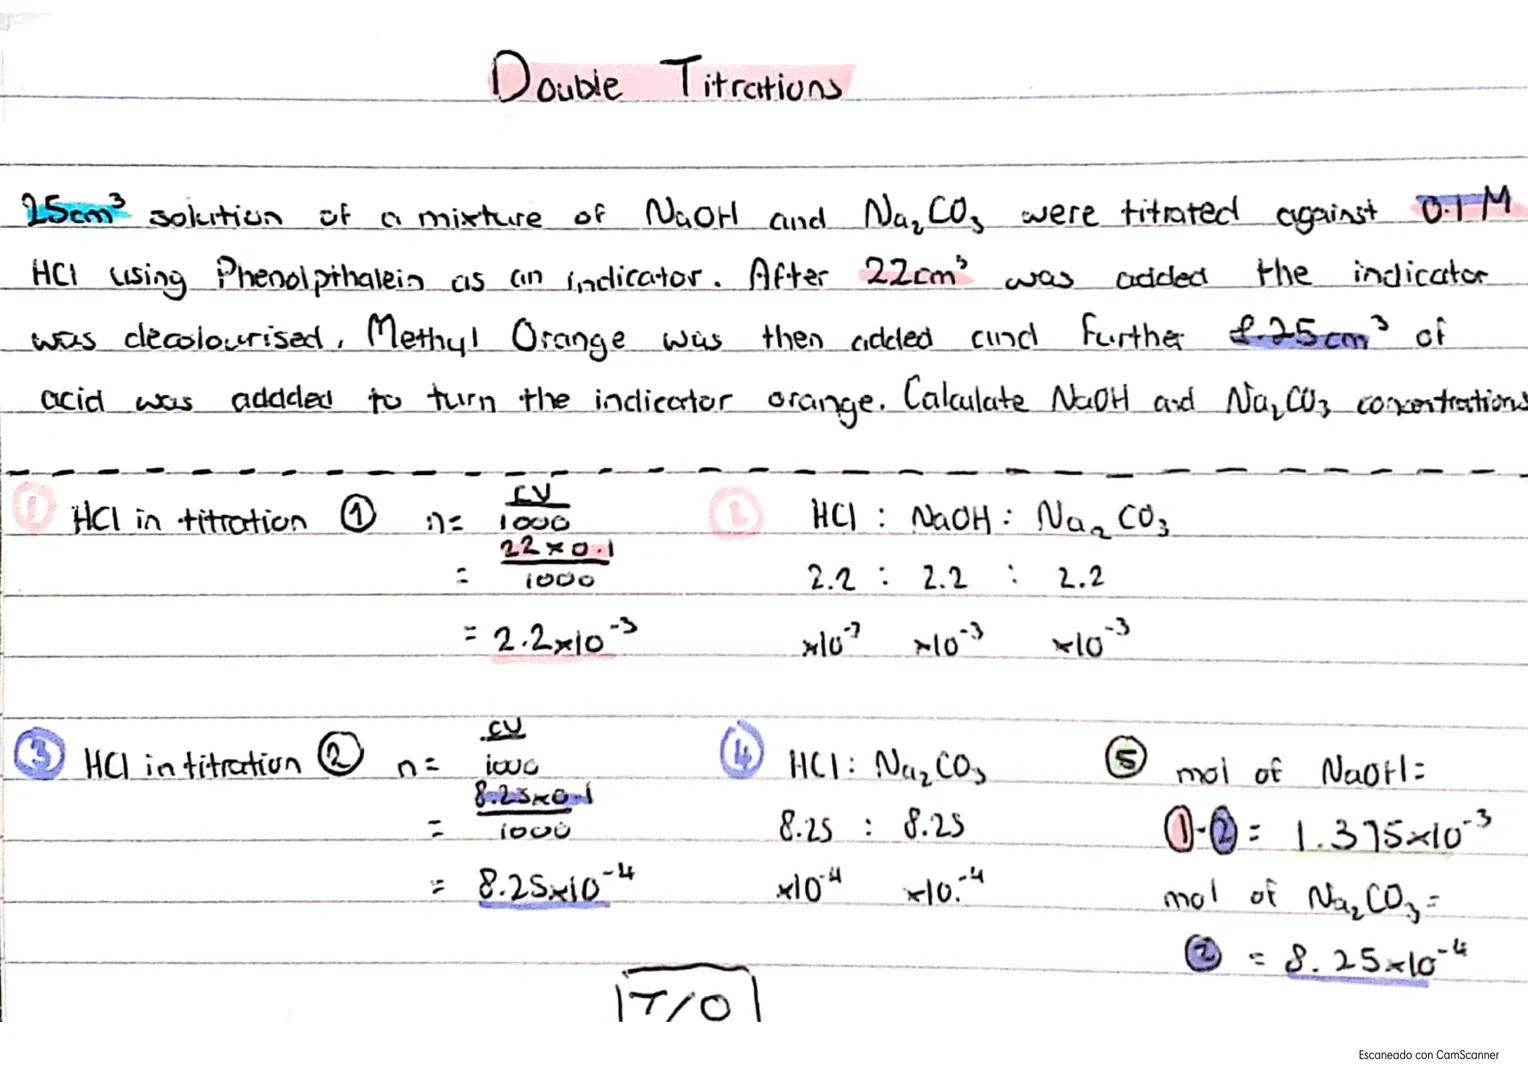 Double Titrations
25cm³ solution of a mixture of NaOH and Na₂CO₃ were titrated against 0.1M
HCl using Phenolpthalein as an indicator. After 22cm³ was added the indicator
was decolourised. Methyl Orange was then added and further 8.25cm³ of
acid was addded to turn the indicator orange. Calculate NaOH and Na₂CO₃ concentrations
① HCl in titration ① n = CV/1000 ② HCl : NaOH : Na₂CO₃
= 22×0.1/1000 2.2 : 2.2 : 2.2
= 2.2×10⁻³ ×10⁻³ ×10⁻³ ×10⁻³
③ HCl in titration ② n = CV/1000 ④ HCl : Na₂CO₃ ⑤ mol of NaOH =
= 8.25×0.1/1000 8.25 : 8.25 ①-② = 1.375×10⁻³
= 8.25×10⁻⁴ ×10⁻⁴ ×10⁻⁴ mol of Na₂CO₃ =
② = 8.25×10⁻⁴
T/O
Escaneado con CamScanner